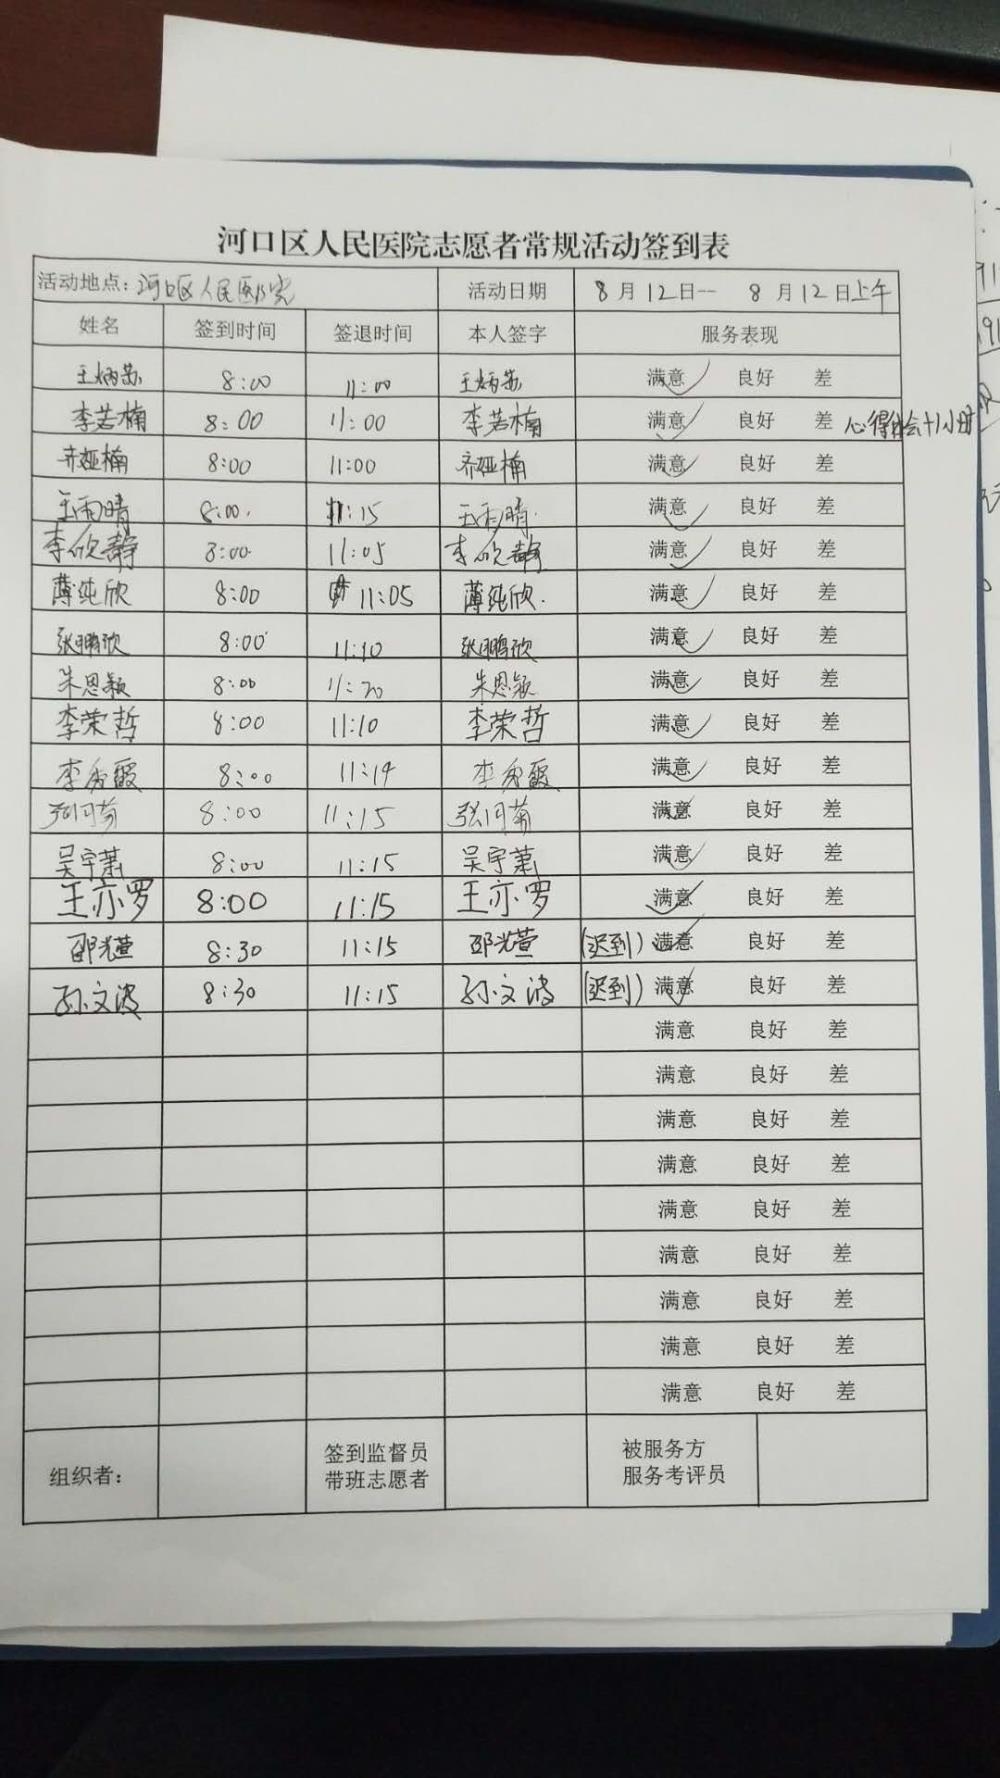 河口区人民医院志愿者常规活动签到表
活动地点：河口区人民医院 活动日期 8月12日一 8月12日上午
姓名 签到时间 签退时间 本人签字 服务表现
王炳茹 8:00 11:00 王炳茹 满意 良好 差
李若楠 8:00 11:00 李若楠 满意 良好 差 心得体会+1小时
齐娅楠 8:00 11:00 齐娅楠 满意 良好 差
王雨晴 8:00 11:15 王雨晴 满意 良好 差
李欣静 8:00 11:05 李欣静 满意 良好 差
薄纯欣 8:00 11:05 薄纯欣 满意 良好 差
张鹏欣 8:00 11:10 张鹏欣 满意 良好 差
朱恩颖 8:00 11:20 朱恩颖 满意 良好 差
李荣哲 8:00 11:10 李荣哲 满意 良好 差
李秀霞 8:00 11:14 李秀霞 满意 良好 差
8:00 11:15 满意 良好 差
吴宇萧 8:00 11:15 吴宇萧 满意 良好 差
王亦罗 8:00 11:15 王亦罗 满意 良好 差
邵光萱 8:30 11:15 邵光萱 (迟到) 满意 良好 差
孙文波 8:30 11:15 孙文波 (迟到) 满意 良好 差
满意 良好 差
满意 良好 差
满意 良好 差
满意 良好 差
满意 良好 差
满意 良好 差
满意 良好 差
满意 良好 差
满意 良好 差
组织者： 签到监督员 被服务方
带班志愿者 服务考评员